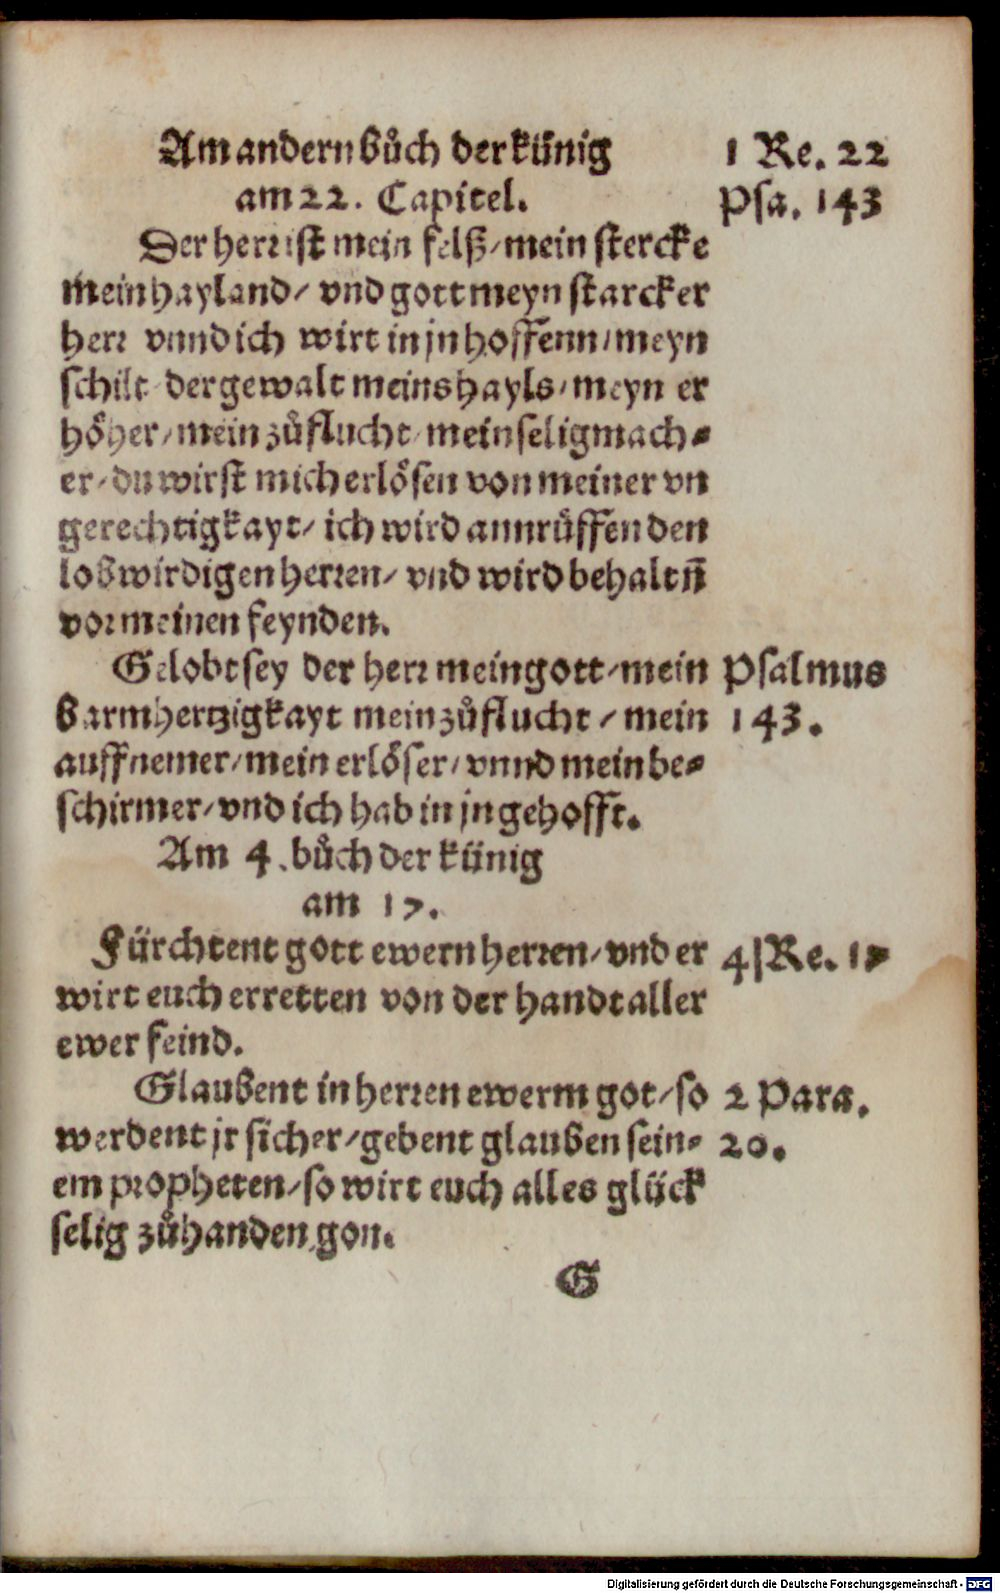 Am andern bůch der künig
am 22. Capitel.
1 Re. 22
Psa. 143
Der herr ist mein felß/ mein stercke
mein hayland/ vnd gott meyn starcker
herr vnnd ich wirt in jn hoffenn/ meyn
schilt der gewalt meins hayls/ meyn er
höher/ mein zůflucht/ mein seligmach-
er/ du wirst mich erlösen von meiner vn
gerechtigkayt/ ich wird annrůffen den
lobwirdigen herren/ vnd wird behaltñ
vor meinen feynden.
Gelobt sey der herr mein gott/ mein
barmhertzigkayt mein zůflucht/ mein
auffnemer/ mein erlöser/ vnnd mein be-
schirmer/ vnd ich hab in jn gehofft.
Psalmus
143.
Am 4. bůch der künig
am 17.
Fürchtent gott ewern herren/ vnd er
wirt euch erretten von der handt aller
ewer feind.
4 Re. 17
Glaubent in herren ewerm got/ so
werdent jr sicher/ gebent glauben sein-
em propheten/ so wirt euch alles glück
selig zůhanden gon.
2 Para.
20.
G
Digitalisierung gefördert durch die Deutsche Forschungsgemeinschaft - DFG